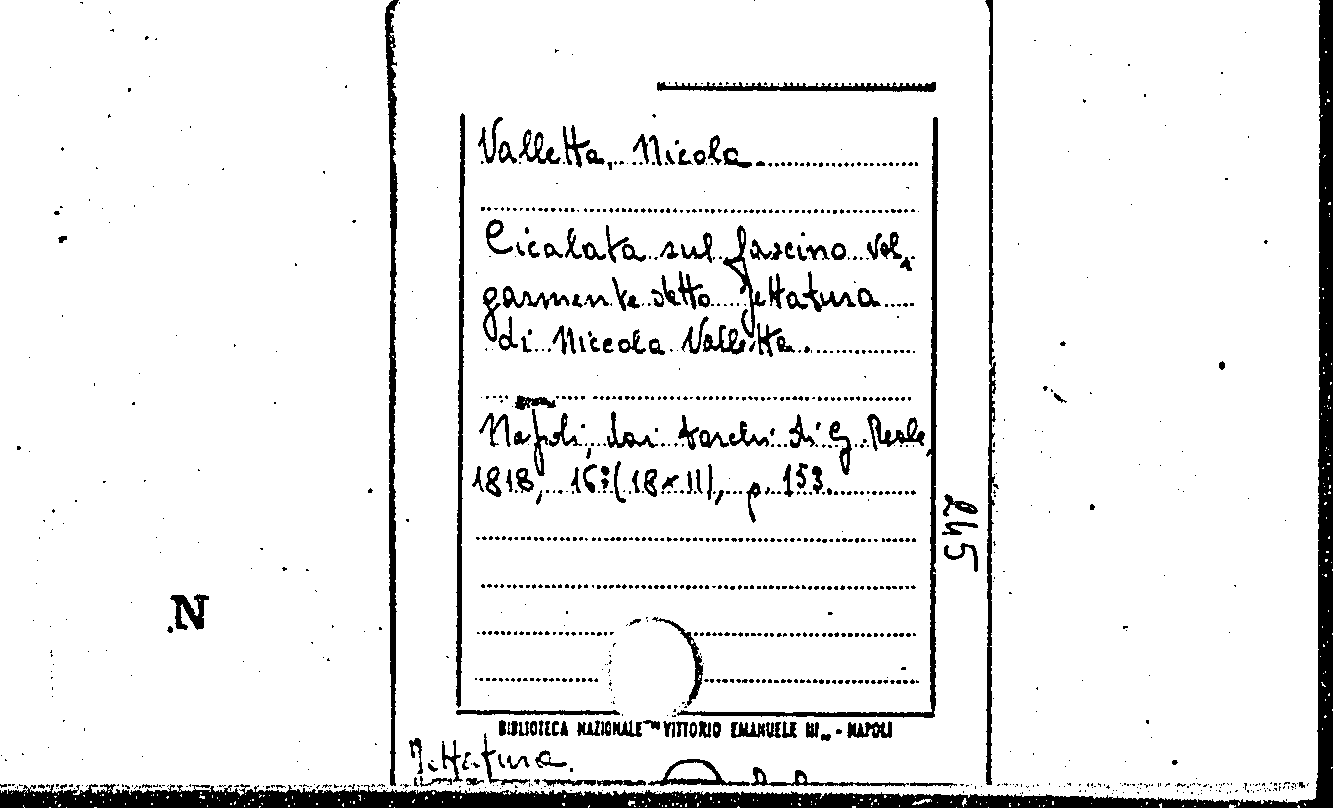 Valletta, Nicola.
Cicalata sul fascino vol,
garmente detto jettatura
di Niccola Valletta.
Napoli, dai torchi di G. Reale,
1818, 16º (18×11), p. 153.
245
N
BIBLIOTECA NAZIONALE "VITTORIO EMANUELE III" - NAPOLI
Jettatura.